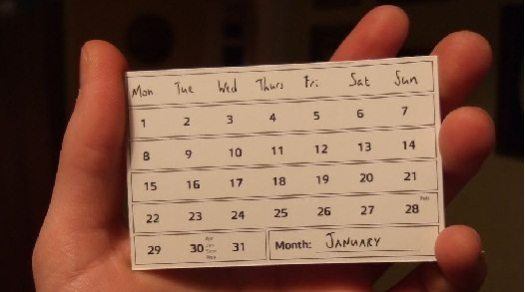 Mon Tue Wed Thurs Fri Sat Sun
1 2 3 4 5 6 7
8 9 10 11 12 13 14
15 16 17 18 19 20 21
22 23 24 25 26 27 28
29 30 31 Month: JANUARY